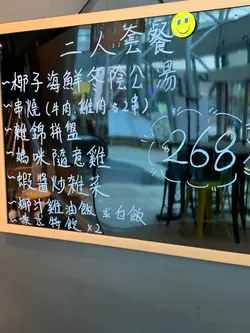 二人套餐
~椰子海鮮冬陰公湯
~串燒(牛肉,雞肉各2串)
~雜錦拼盤
~媽咪隨意雞
~蝦醬炒雜菜
~椰汁雞油飯 或 白飯
~泰式特飲 x2
268